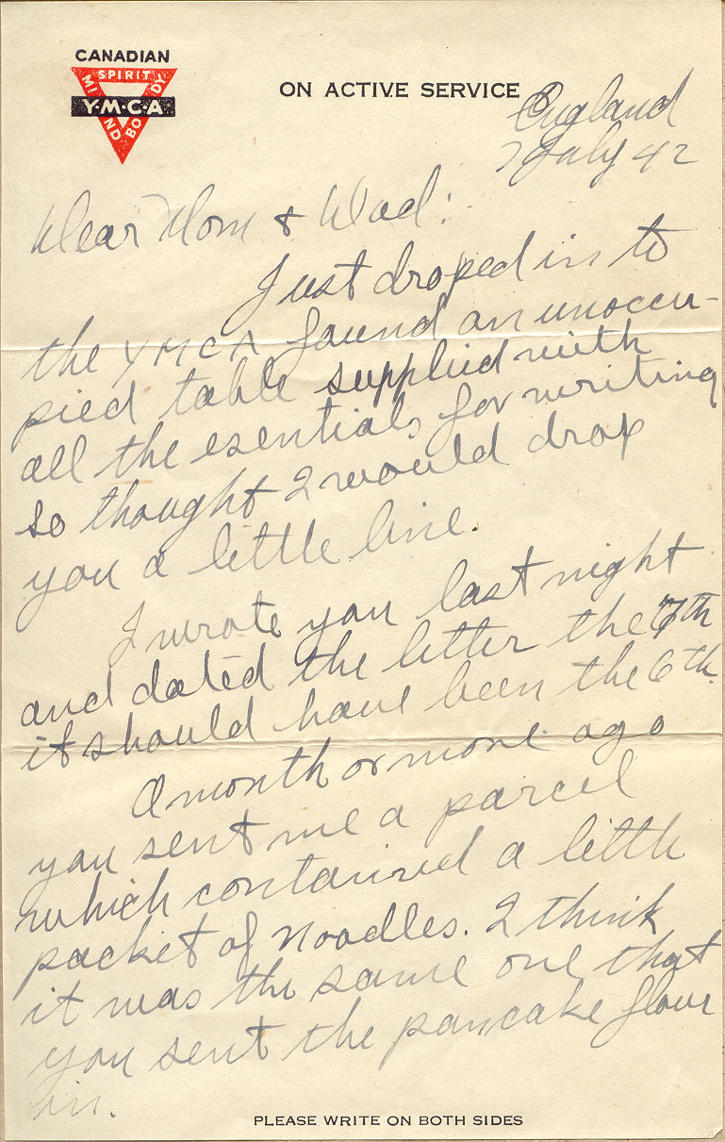 CANADIAN
SPIRIT
MIND
BODY
Y·M·C·A
ON ACTIVE SERVICE
England
7 July 42
Dear Mom & Dad:
Just droped in to
the YMCA found an unoccu-
pied table supplied with
all the esentials for writing
so thought I would drop
you a little line.
I wrote you last night
and dated the letter the 7th
it should have been the 6th.
A month or more ago
you sent me a parcel
which contained a little
packet of Noodles. I think
it was the same one that
you sent the pancake flour
in.
PLEASE WRITE ON BOTH SIDES